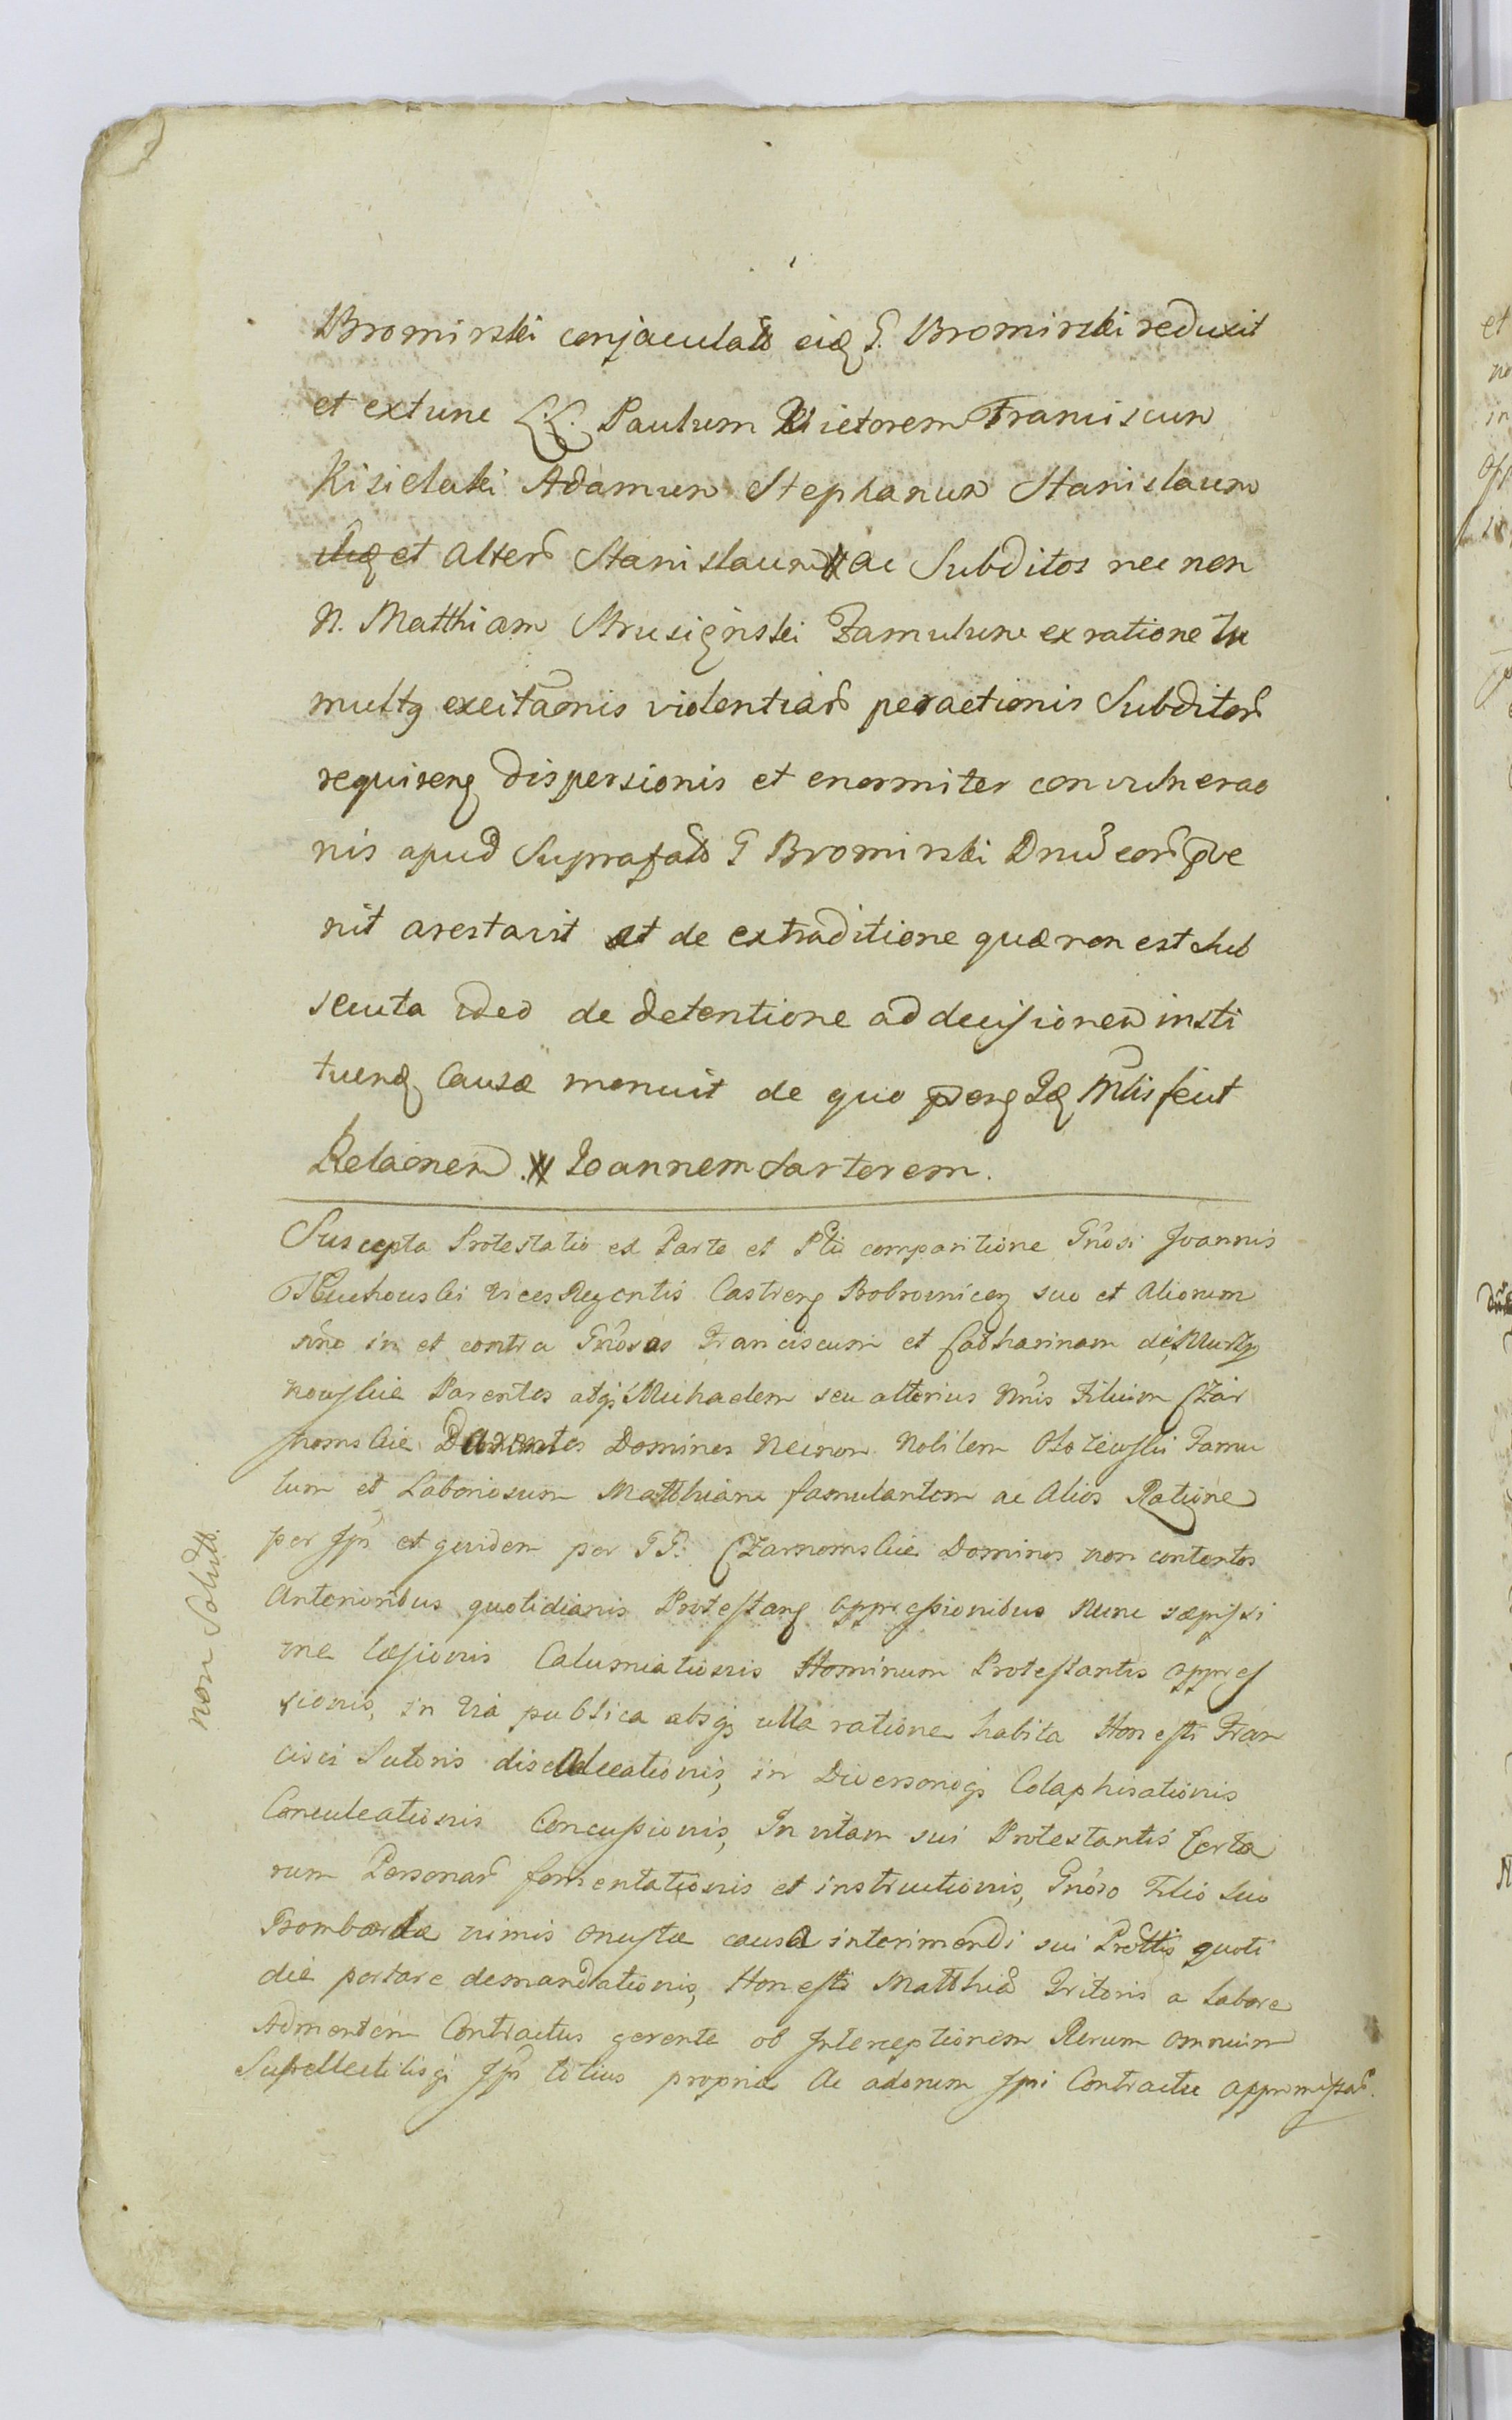 Bromirski conjaculato eid G. Bromirski reduxit
et extunc LL. Paulum Vietorem Franciscum
Kisielski Adamum Stephanum Stanislaum
et alterũ Stanislaum ac Subditos nec non
N. Matthiam Strusięnski Famulum ex ratione tu
multq excitãonis violentiarũ peractionis Subditorũ
requirenq dispersionis et enormiter convulnerao
nis apud Suprafato G Bromirski Dnũ eorũ pve
nit arestavit et de extraditione quæ non est sub
secuta ideo de detentione ad decisionem insti
tuend Causæ monuit de quo Mlis fecit
Relaonem. Joannem Sartorem.
Suscepta Protestatio ex Parte et Pli comparitione Gnosi Joannis
vices Regentis Castreng Bobrovnicen suo et Aliorum
nõe in et contra Gnosos Franciscum et Catharinam de
Parentes atq Michaelem seu alterius Nnis Filium Czar
nomskie Dominos Necnon Nobilem Famu
lum et Laboriosum Matthiam famulantem ac Alios Ratione
per Jps et quidem per GG. Czarnomskie Dominos non contentos
Anterioribus quotidianis Protestang oppressionibus Nunc sæpissi
me læsionis Calumniationis Hominum Protestantis oppres
sionis, in via publica absq ulla ratione habita Honesti Fran
cisci Sutoris in Diversoriq Colaphisationis
Conculcationis Concussionis, In vitam sui Protestantis Certa
rum Personarũ fomentationis et instructionis, Gnoso Filio Suo
Bombarda nimis onusta causa interimendi sui Prottis quoti
die portare demandationis, Honesti Matthiæ Tritoris a labore
Admentem Contractus gerente ob Interceptionem Rerum omnium
Supellectilisq Jps totius propria Ac adorum Jpsi Contractu appromissarũ.
non Solvit.